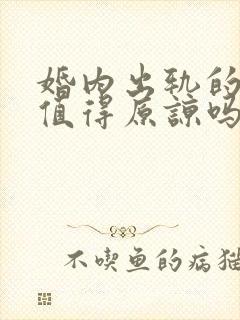 婚内出轨的
值得原谅吗
不喫鱼的病猫